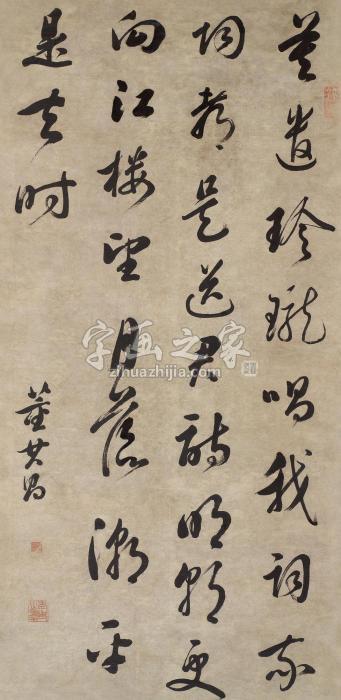 莫遣玲瓏唱我詞我
詞都是送君詩明朝更
向江樓望月落潮平
是去时
董其昌
字画之家
zihuazhijia.com